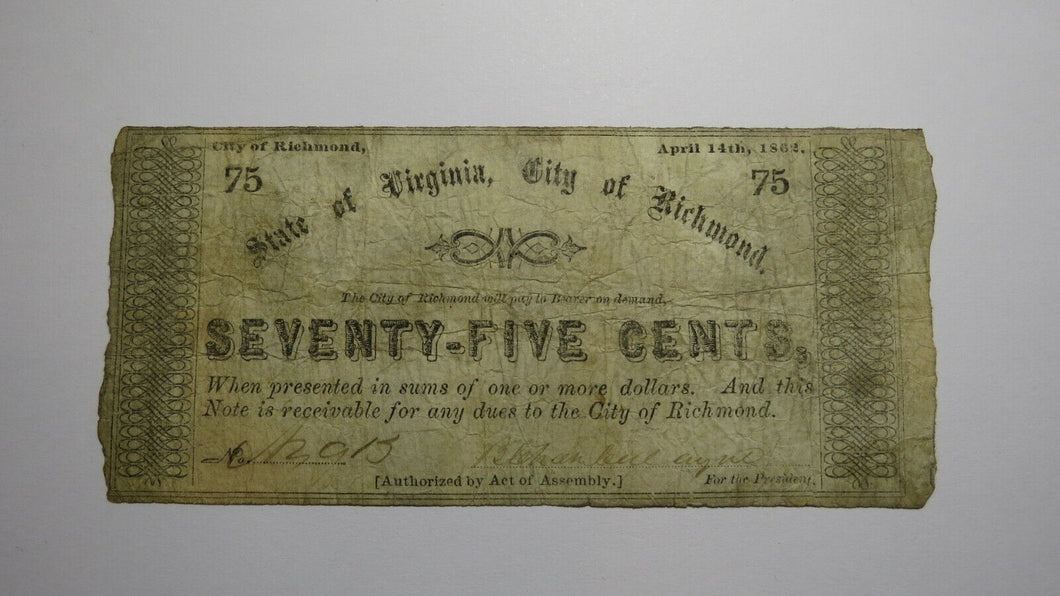 City of Richmond, April 14th, 1862.
75 75
State of Virginia, City of Richmond.
The City of Richmond will pay to Bearer on demand,
SEVENTY-FIVE CENTS,
When presented in sums of one or more dollars. And this
Note is receivable for any dues to the City of Richmond.
No.
[Authorized by Act of Assembly.] For the President.